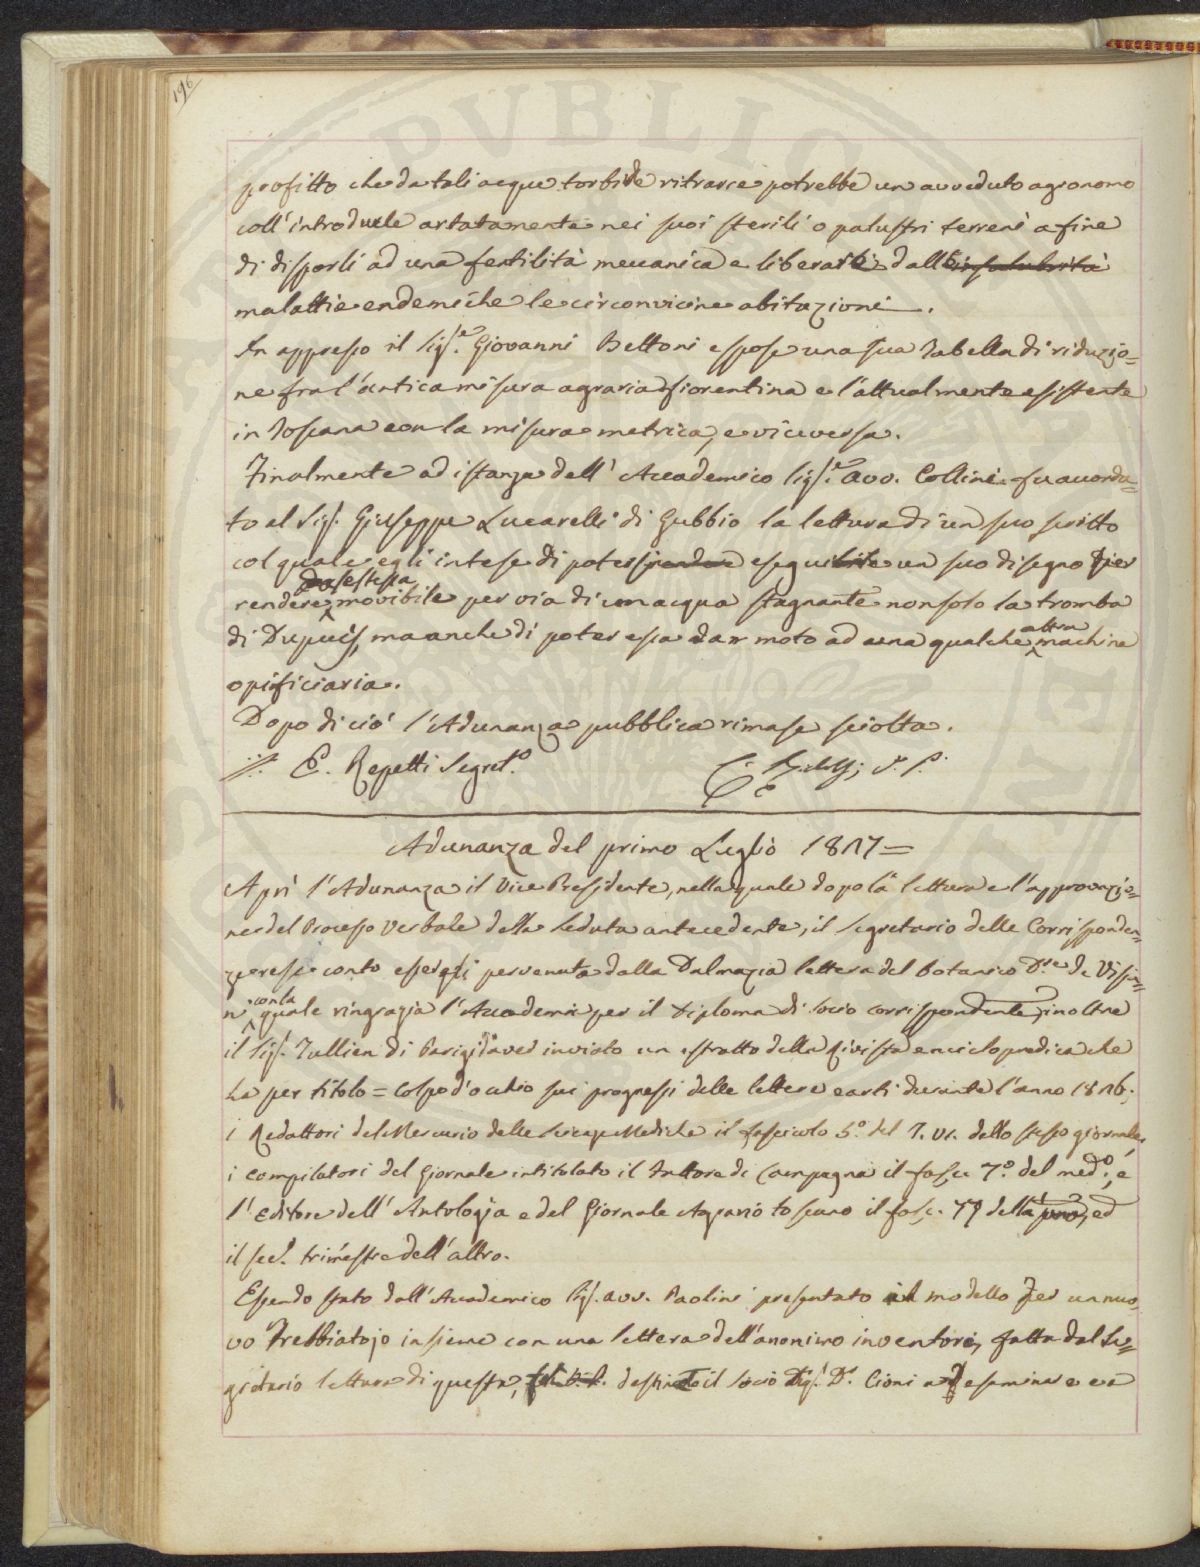 196
profitto che da tali acque torbide ritrarre potrebbe un avveduto agronomo
coll'introdurle artatamente nei suoi sterili o palustri terreni a fine
di disporli ad una fertilità meccanica e liberare dalle insalubrità
malattie endemiche le circonvicine abitazioni.
In appresso il Sig.e Giovanni Bettoni espose una sua Tabella di riduzio=
ne fra l'antica misura agraria fiorentina e l'attualmente esistente
in Toscana con la misura metrica, e viceversa.
Finalmente ad istanza dell'Accademico Sig.e Avv. Collini fu accorda=
to al Sig. Giuseppe Lucarelli di Gubbio la lettura di un suo scritto
col quale egli intese di poter eseguire un suo disegno per
da se stessa
rendere movibile per via di un acqua stagnante non solo la tromba
altra
di Dupuis, ma anche di poter essa dar moto ad una qualche machine
opificiaria.
Dopo di ciò l'Adunanza pubblica rimase sciolta.
E. Repetti Segret.o
Adunanza del primo Luglio 1827=
Aprì l'Adunanza il Vice Presidente, nella quale dopo la lettura e l'approvazio=
ne del Processo Verbale della Seduta antecedente, il Segretario delle Corrisponden=
ze rese conto essergli pervenuta dalla Dalmazia lettera del botanico D.re de Visia=
con la
n quale ringrazia l'Accademia per il diploma di Socio corrispondente; inoltre
il Sig. Jullien di Parigi aver inviato un estratto della Rivista enciclopedica che
ha per titolo = Colpo d'occhio sui progressi delle lettere e arti durante l'anno 1826;
i Redattori del Mercurio delle Scienze Mediche il fascicolo 5.o del T. VI. dello stesso giornale,
i compilatori del Giornale intitolato il Fattore di Campagna il fasc. 7.o del med.o, e
l'Editore dell'Antologia e del Giornale Agrario toscano il fasc. 77 della prima, ed
il sec.o trimestre dell'altro.
Essendo stato dall'Accademico Sig. Avv. Paolini presentato il modello per un nuo=
vo Trebbiatojo insieme con una lettera dell'anonimo inventore, fatta dal Se=
gretario lettura di questa, destinò il Socio Sig. D.r Cioni ad esaminare e a